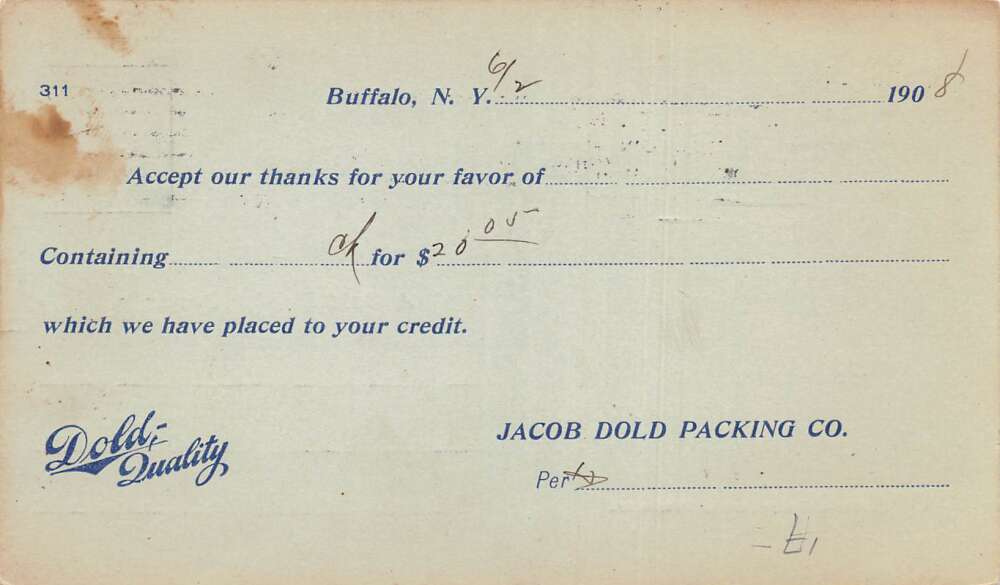 311 Buffalo, N. Y. 6/2 1908
Accept our thanks for your favor of
Containing ck for $20 05
which we have placed to your credit.
Dold-Quality
JACOB DOLD PACKING CO.
Per